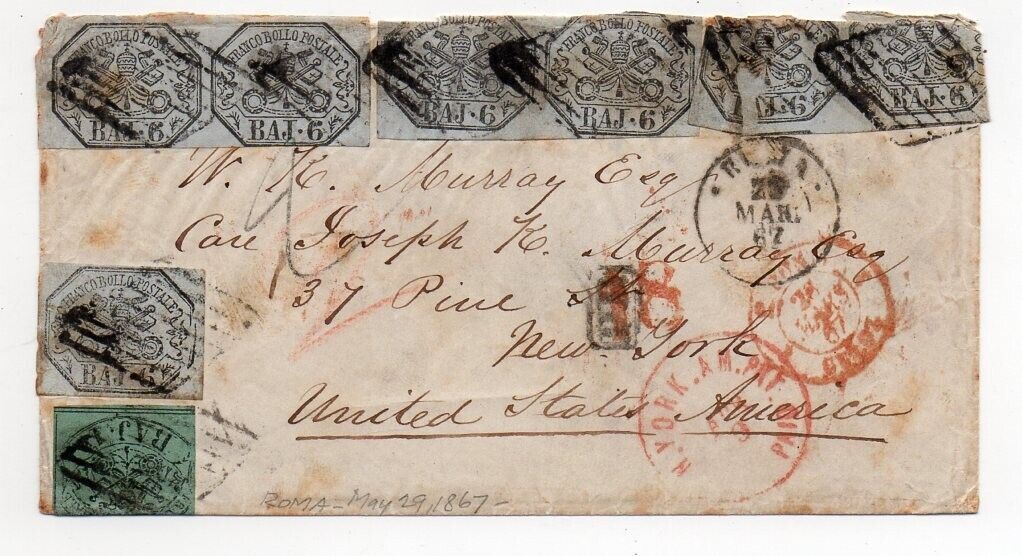 FRANCO BOLLO POSTALE FRANCO BOLLO POSTALE FRANCO BOLLO POSTALE FRANCO BOLLO POSTALE
BAJ·6 BAJ·6 BAJ·6 BAJ·6 BAJ·6 BAJ·6
W. K. Murray Esq
ROMA
29
MAR.
67
Care Joseph K. Murray Esq
37 Pine St.
18
New York
FRANCO BOLLO POSTALE
BAJ·6
N. YORK. AM. PKT
PAID
United States America
BAJ.
ROMA - May 29, 1867 -